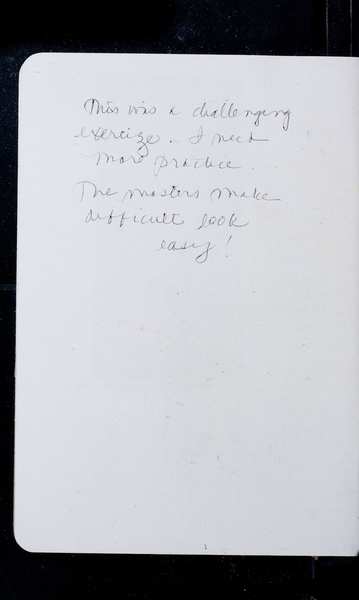 This was a challenging
exercize. I need
more practice...
The masters make
difficult look
easy!